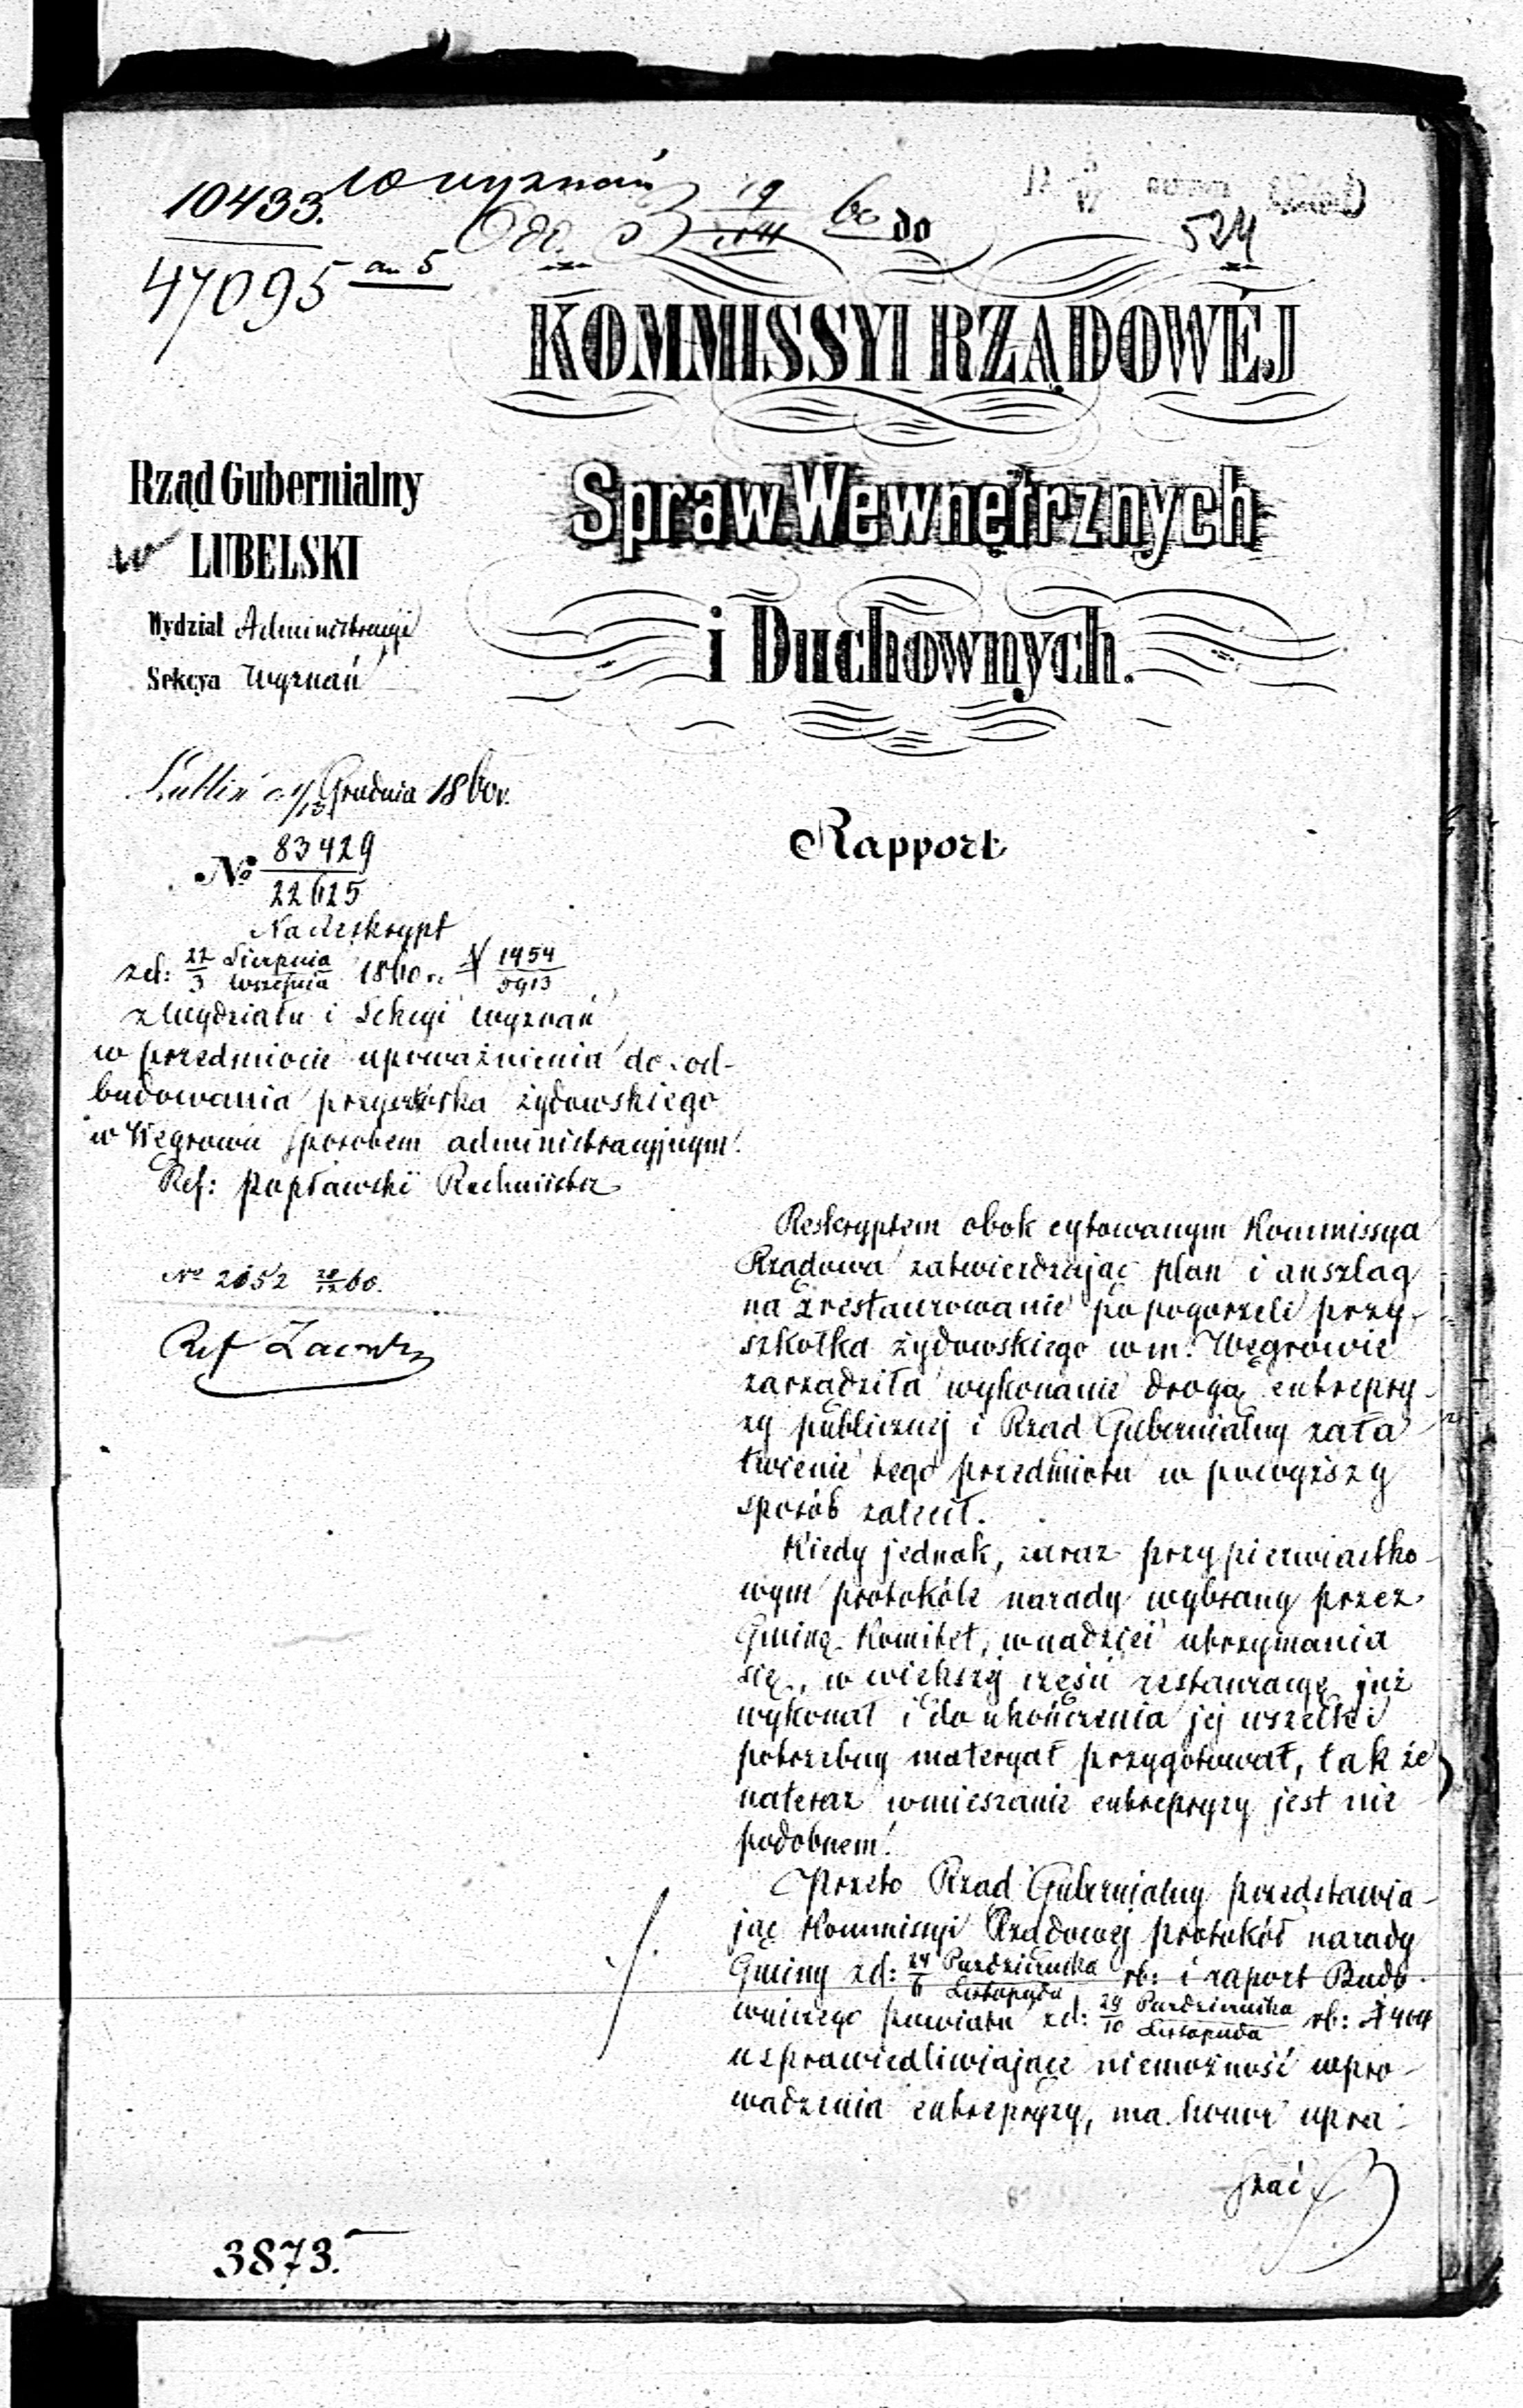 10433.
Wyznań
47095
do
524
KOMMISSYI RZĄDOWÉJ
Spraw Wewnętrznych
i Duchownych.
Rząd Gubernialny
LUBELSKI
Wydział Administracyji
Sekcya Wyznań
Lublin d. 1/13 Grudnia 1860 r.
№ 83429/22625
Na Reskrypt
zd: 22 Sierpnia/3 Września 1860 r. № 1454/5913
z Wydziału i Sekcyi Wyznań
w przedmiocie upoważnienia do od-
budowania przyszkółka żydowskiego
w Węgrowie sposobem administracyjnym.
Ref: Popławski Rachmistrz
№ 2052 20/12 60.
Ref
Rapport
Reskryptem obok cytowanym Kommissya
Rządowa zatwierdzając plan i anszlag
na zrestaurowanie po pogorzeli przy-
szkółka żydowskiego w m. Węgrowie
zarządziła wykonanie drogą entrepry-
zy publicznej i Rząd Gubernialny zała-
twienie tego przedmiotu w powyższy
sposób zalecił.
Kiedy jednak, zaraz przy pierwiastko-
wym protokóle narady wybrany przez
Gminę Komitet, w nadziei utrzymania
się, w większej części restauracyę już
wykonał i do ukończenia jej wszelki
potrzebny materyał przygotował, tak że
nateraz wmieszanie entrepryzy jest nie
podobnem.
Przeto Rząd Gubernialny przedstawia-
jąc Kommissyi Rządowej protokół narady
Gminy zd: 24 Października/6 Listopada rb: i raport Budo-
wniczego powiatu zd: 29 Października/10 Listopada rb: № 404
usprawiedliwiające niemożność wpro-
wadzenia entrepryzy, ma honor upra-
szać
3873.